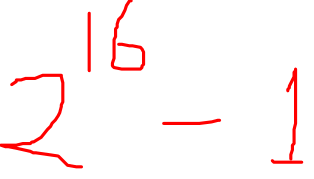 2^16 - 1